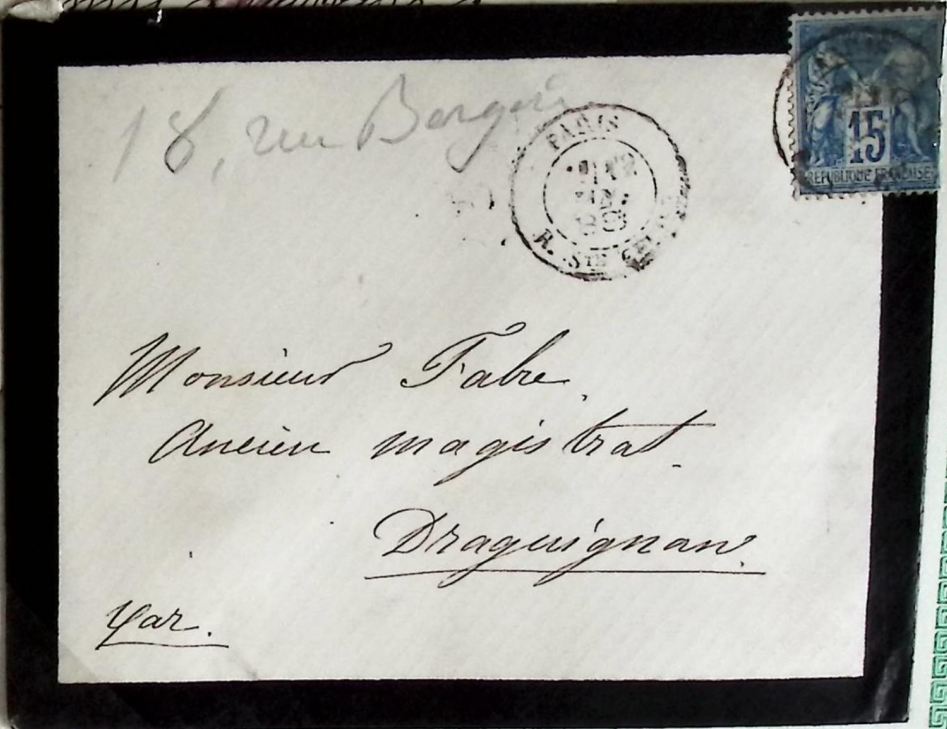 18, rue
PARIS
R. STE
15
REPUBLIQUE FRANCAISE
Monsieur Fabre.
Ancien magistrat.
Draguignan.
Var.